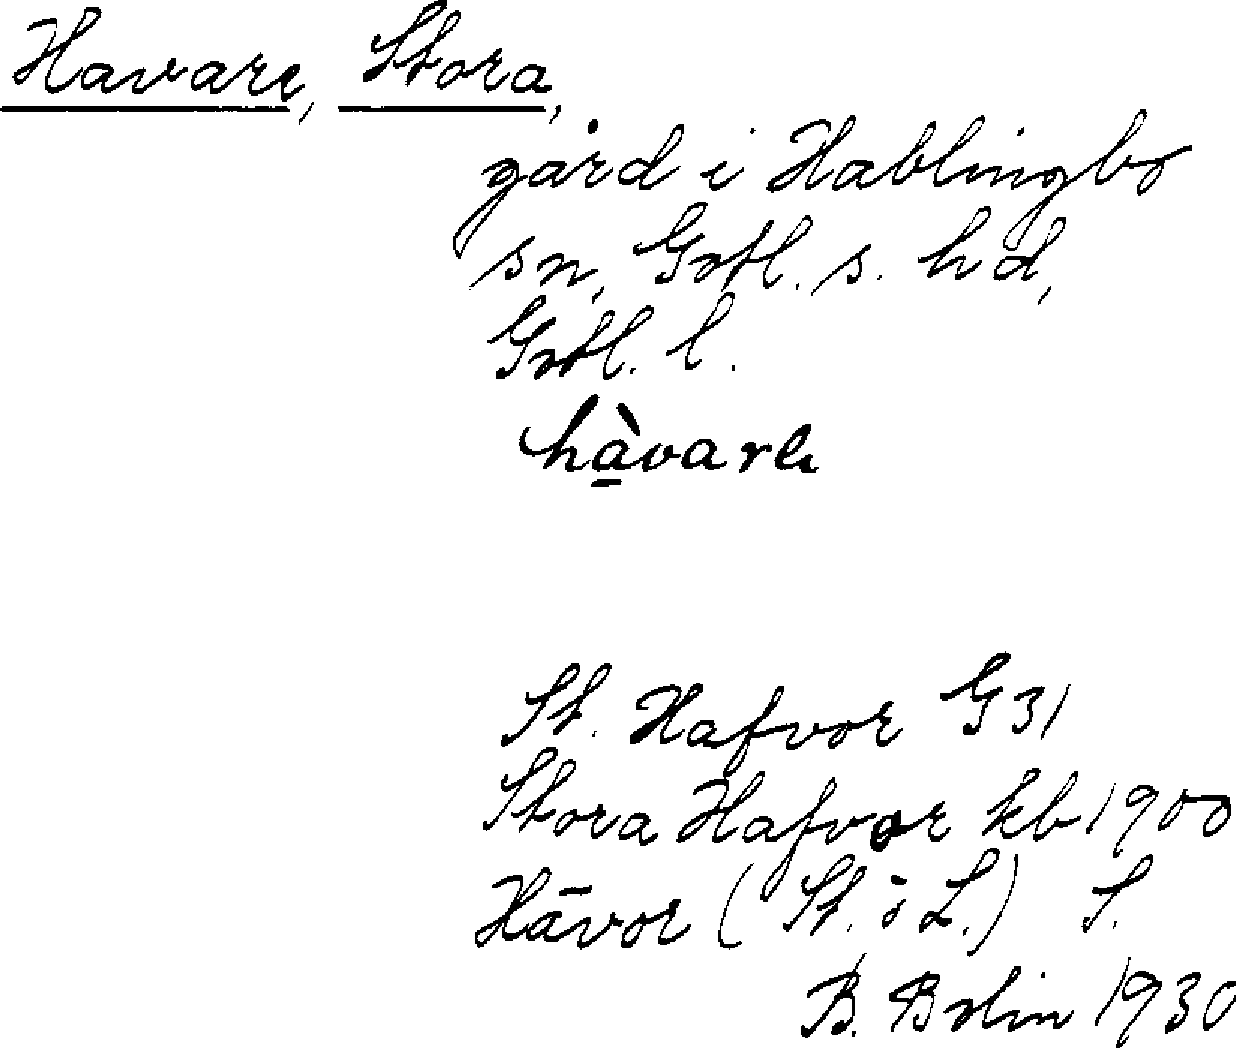 Havare, Stora,
gård i Hablingbo
sn, Gotl. s. hd,
Gotl. l.
St. Hafvor G 31
Stora Hafvor kb 1900
Hāvor (St. ö L.) S.
B. Bolin 1930